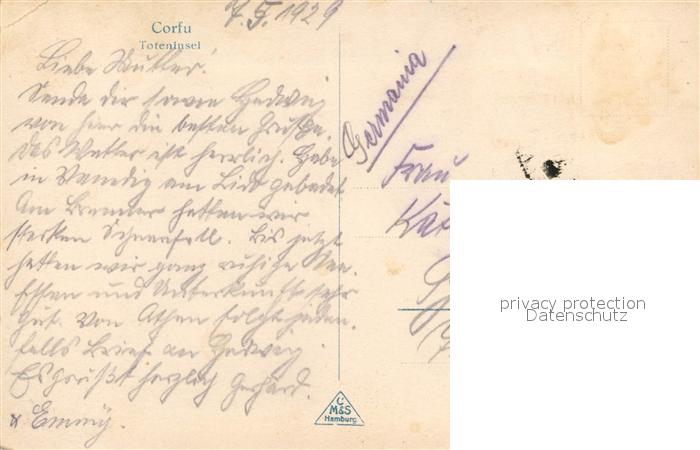 7.5.1929
Corfu
Toteninsel
Liebe Mutter!
Sende dir sowie Hedwig
von hier die besten Grüße.
Das Wetter ist herrlich. Habe
in Venedig am Lido gebadet
Am Brenner hatten wir
starken Schneefall. Bis jetzt
hatten wir ganz ruhige See.
Essen und Unterkunft sehr
gut. Von Athen folgt jeden-
falls Brief an Hedwig.
Es grüßt herzlich Gerhard.
& Emmy.
Germania
Frau
C
M&S
Hamburg
privacy protection
Datenschutz